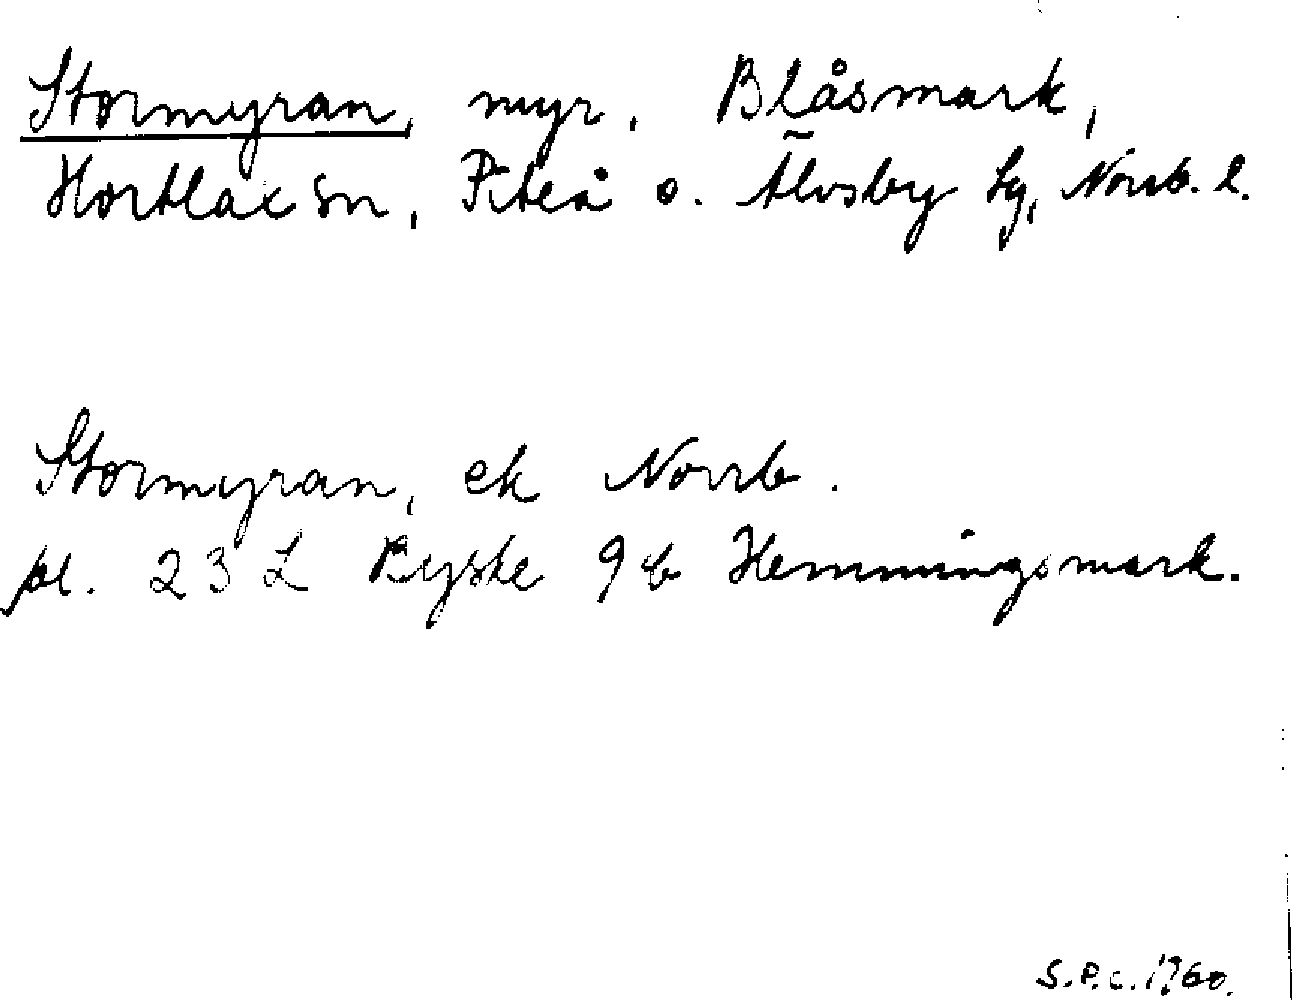 Stormyran, myr, Blåsmark,
Hortlax sn, Piteå o. Älvsby tg, Norrb. l.
Stormyran, ek Norrb.
pl. 23 L Byske 9 b Hemmingsmark.
S.P.C. 1960.